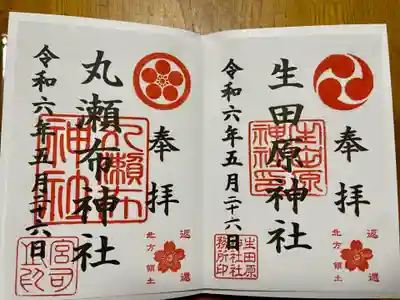 奉拝
生田原神社
令和六年五月二十六日
生田原神社印
生田原神社社務所印
返還
北方領土
奉拝
丸瀬布神社
令和六年五月二十六日
丸瀬布神社
宮司之印
返還
北方領土